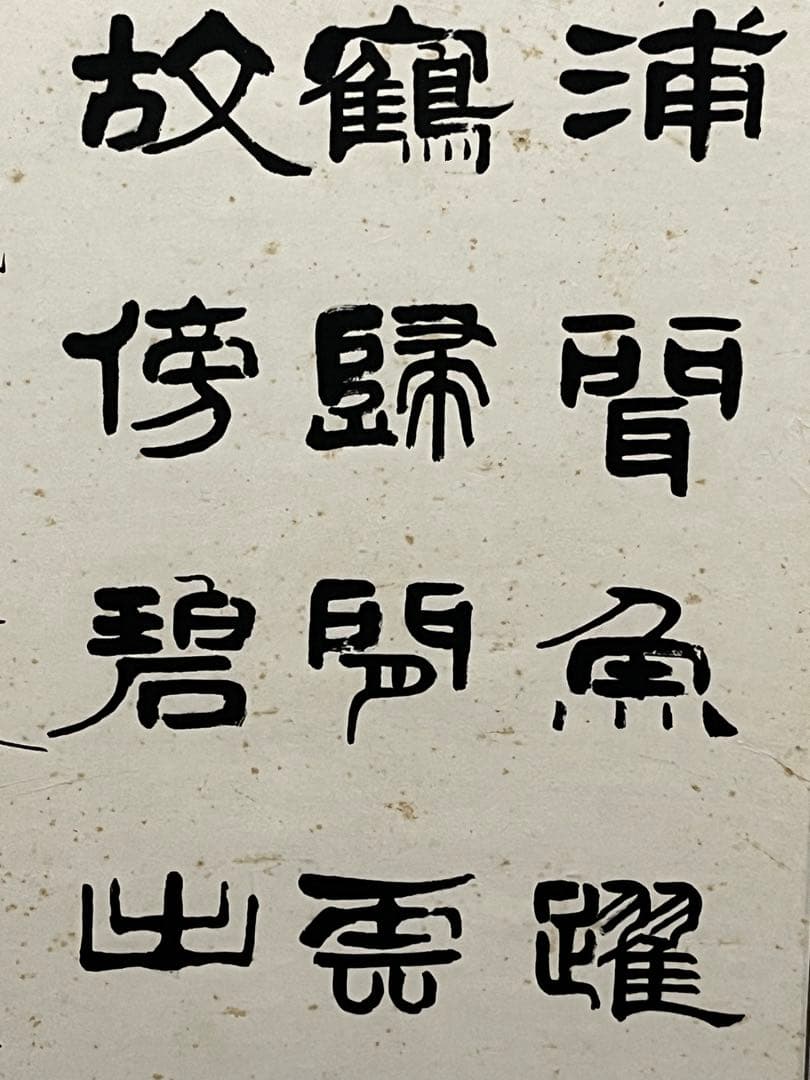 浦聞魚躍
鶴歸閒雲
故傍碧出